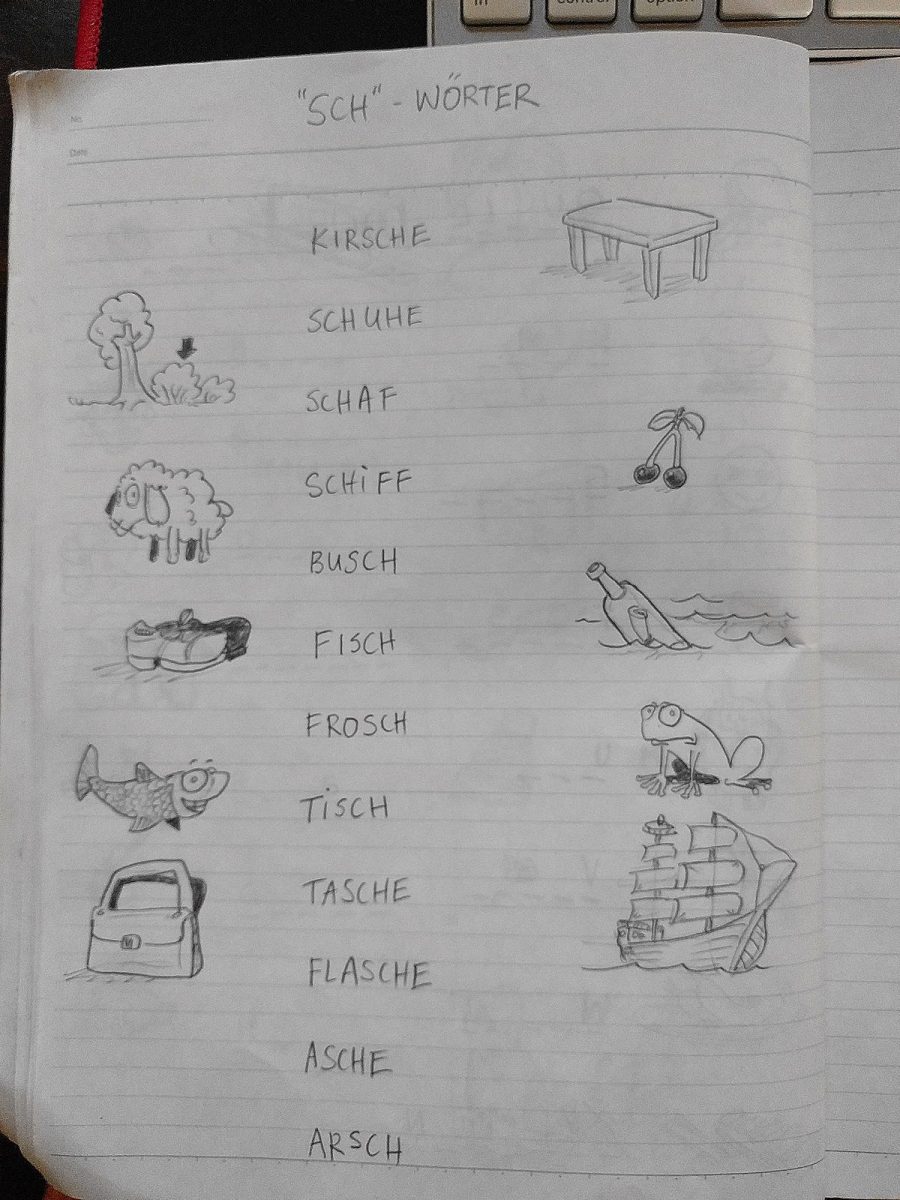 in
control
option
No.
Date
"SCH" - WÖRTER
KIRSCHE
SCHUHE
SCHAF
SCHiFF
BUSCH
FISCH
FROSCH
TiSCH
TASCHE
FLASCHE
ASCHE
ARSCH